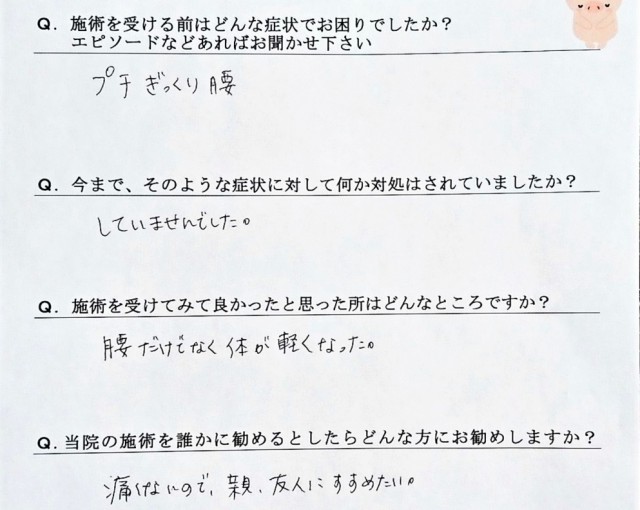 Q. 施術を受ける前はどんな症状でお困りでしたか？
エピソードなどあればお聞かせ下さい
プチぎっくり腰
Q. 今まで、そのような症状に対して何か対処はされていましたか？
していませんでした。
Q. 施術を受けてみて良かったと思った所はどんなところですか？
腰だけでなく体が軽くなった。
Q. 当院の施術を誰かに勧めるとしたらどんな方にお勧めしますか？
痛くないので、親、友人にすすめたい。